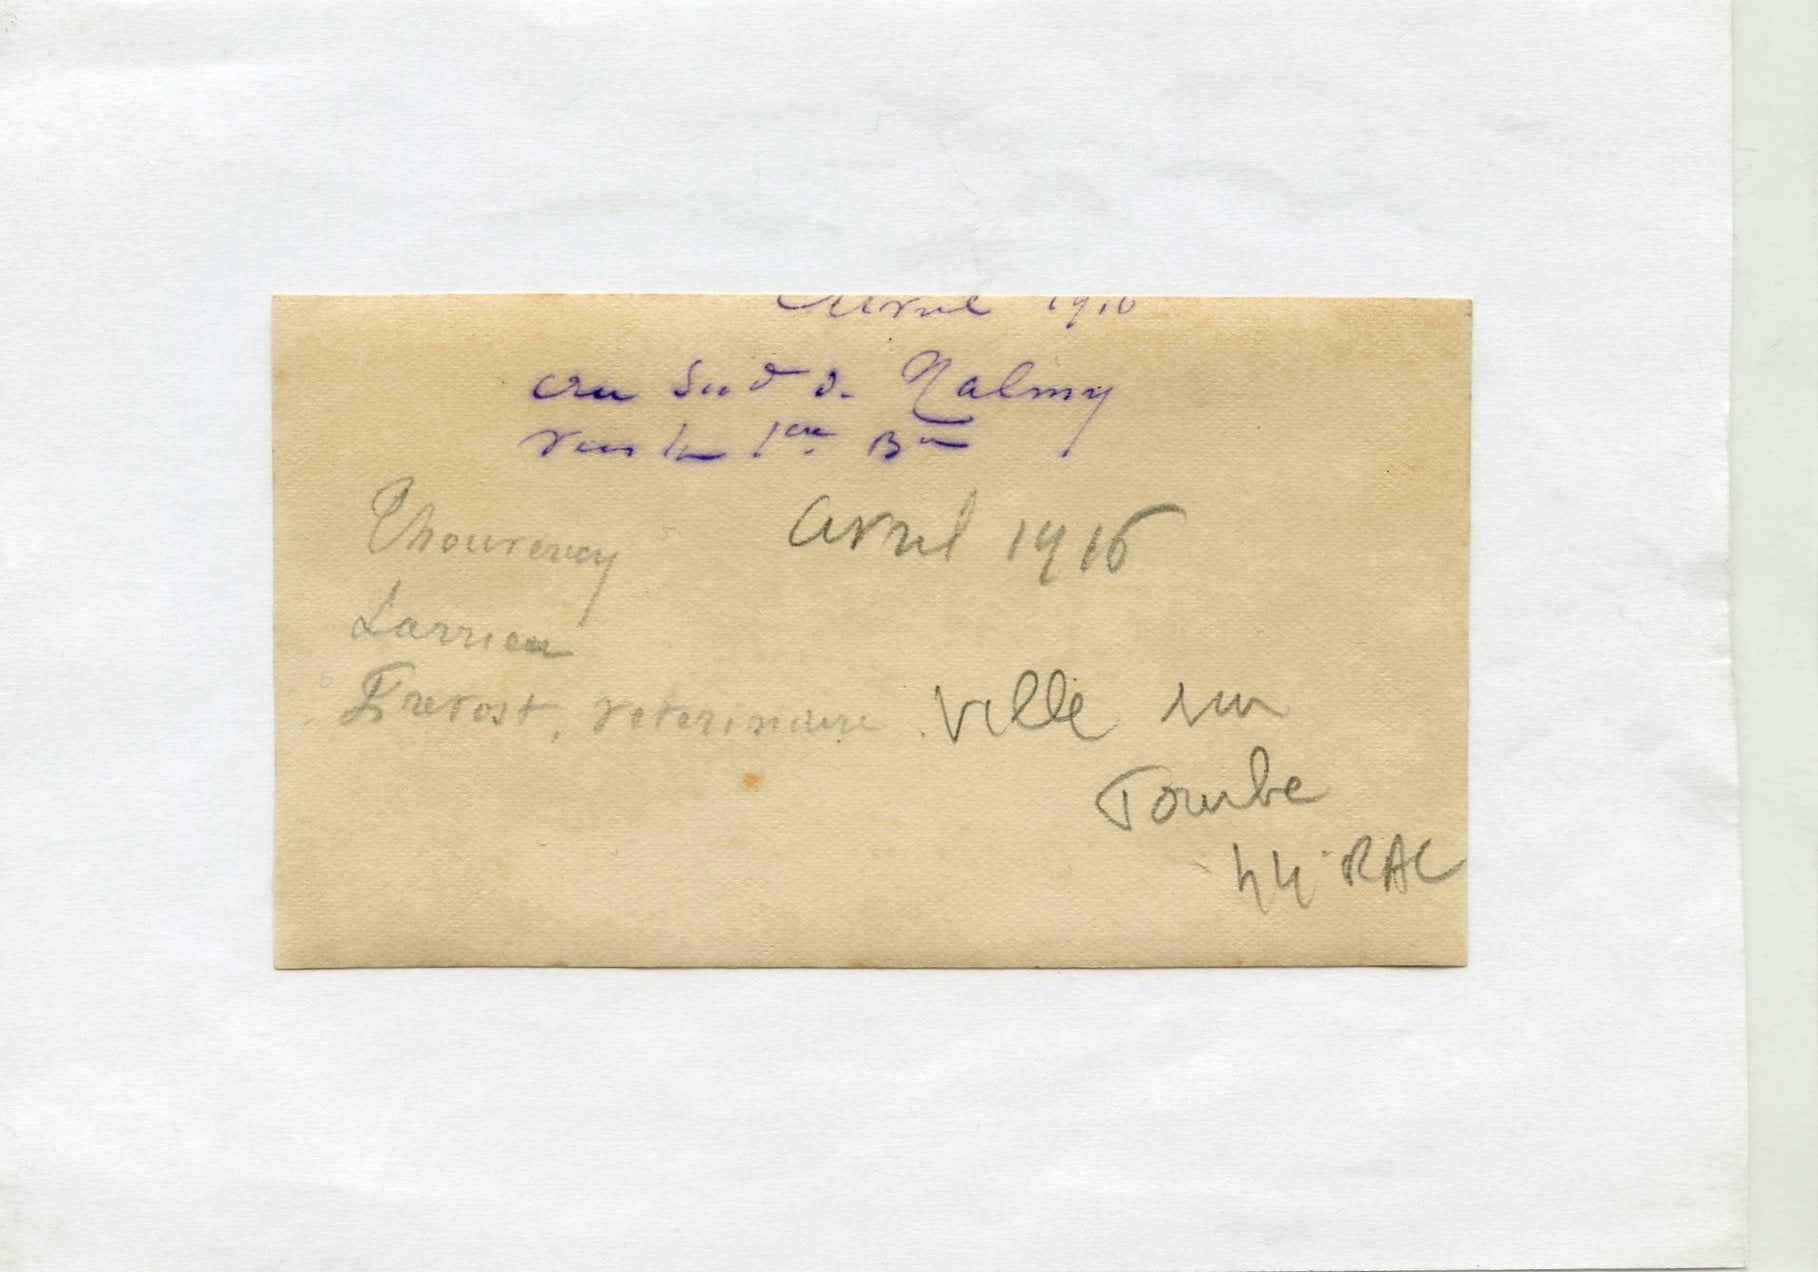 Avril 1916
au Sud de Malmy
1ère Bie
Avril 1916
Larrieu
Prevost, veterinaire
Ville sur
Tourbe
44 RAC